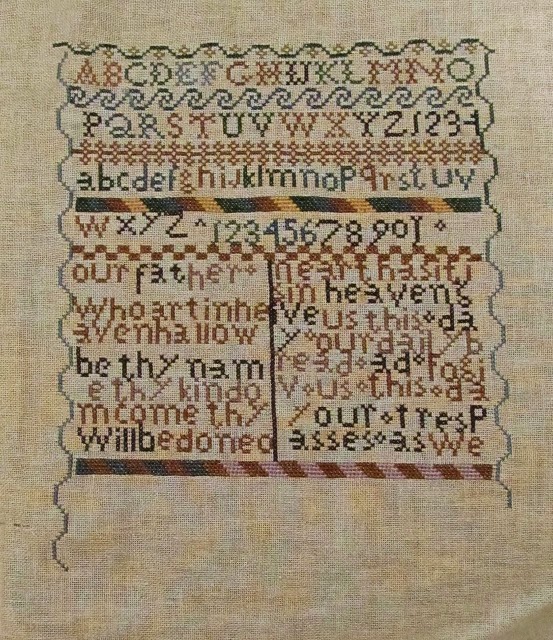 ABCDEFGHIJKLMNO
PQRSTUVWXYZ1234
abcdefghijklmnopqrstuv
wxyz 1234567890
our father
whoartinhe
avenhallow
be thy nam
e thy kindo
m come thy
willbedoneo
neart hasiti
sin heaveng
iveus this da
y our daily b
read ad forgi
v us this da
y our tresp
asses as we